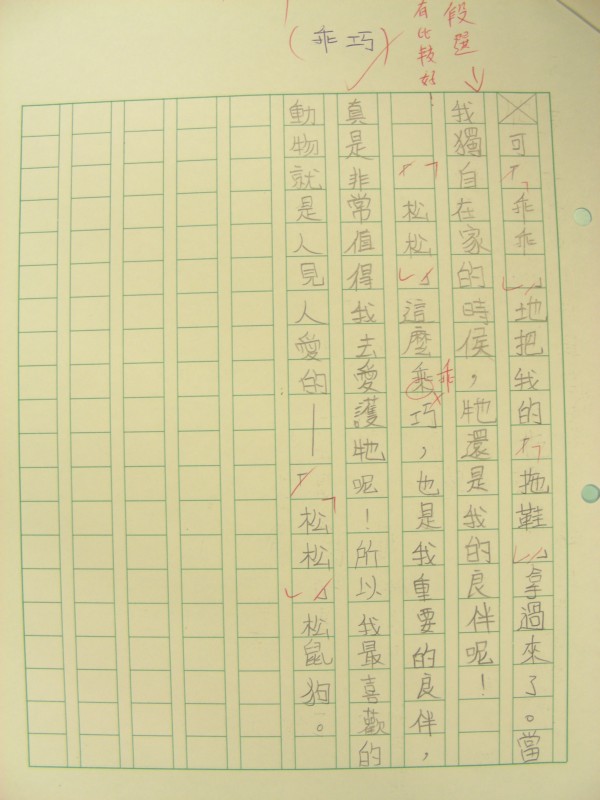 段選
有比較好
(乖巧)
可「乖乖」地把我的「拖鞋」拿過來了。當
我獨自在家的時侯,牠還是我的良伴呢!
「松松」這麼乘巧,也是我重要的良伴,
乖
真是非常值得我去愛護牠呢!所以我最喜歡的
動物就是人見人愛的—「松松」松鼠狗。